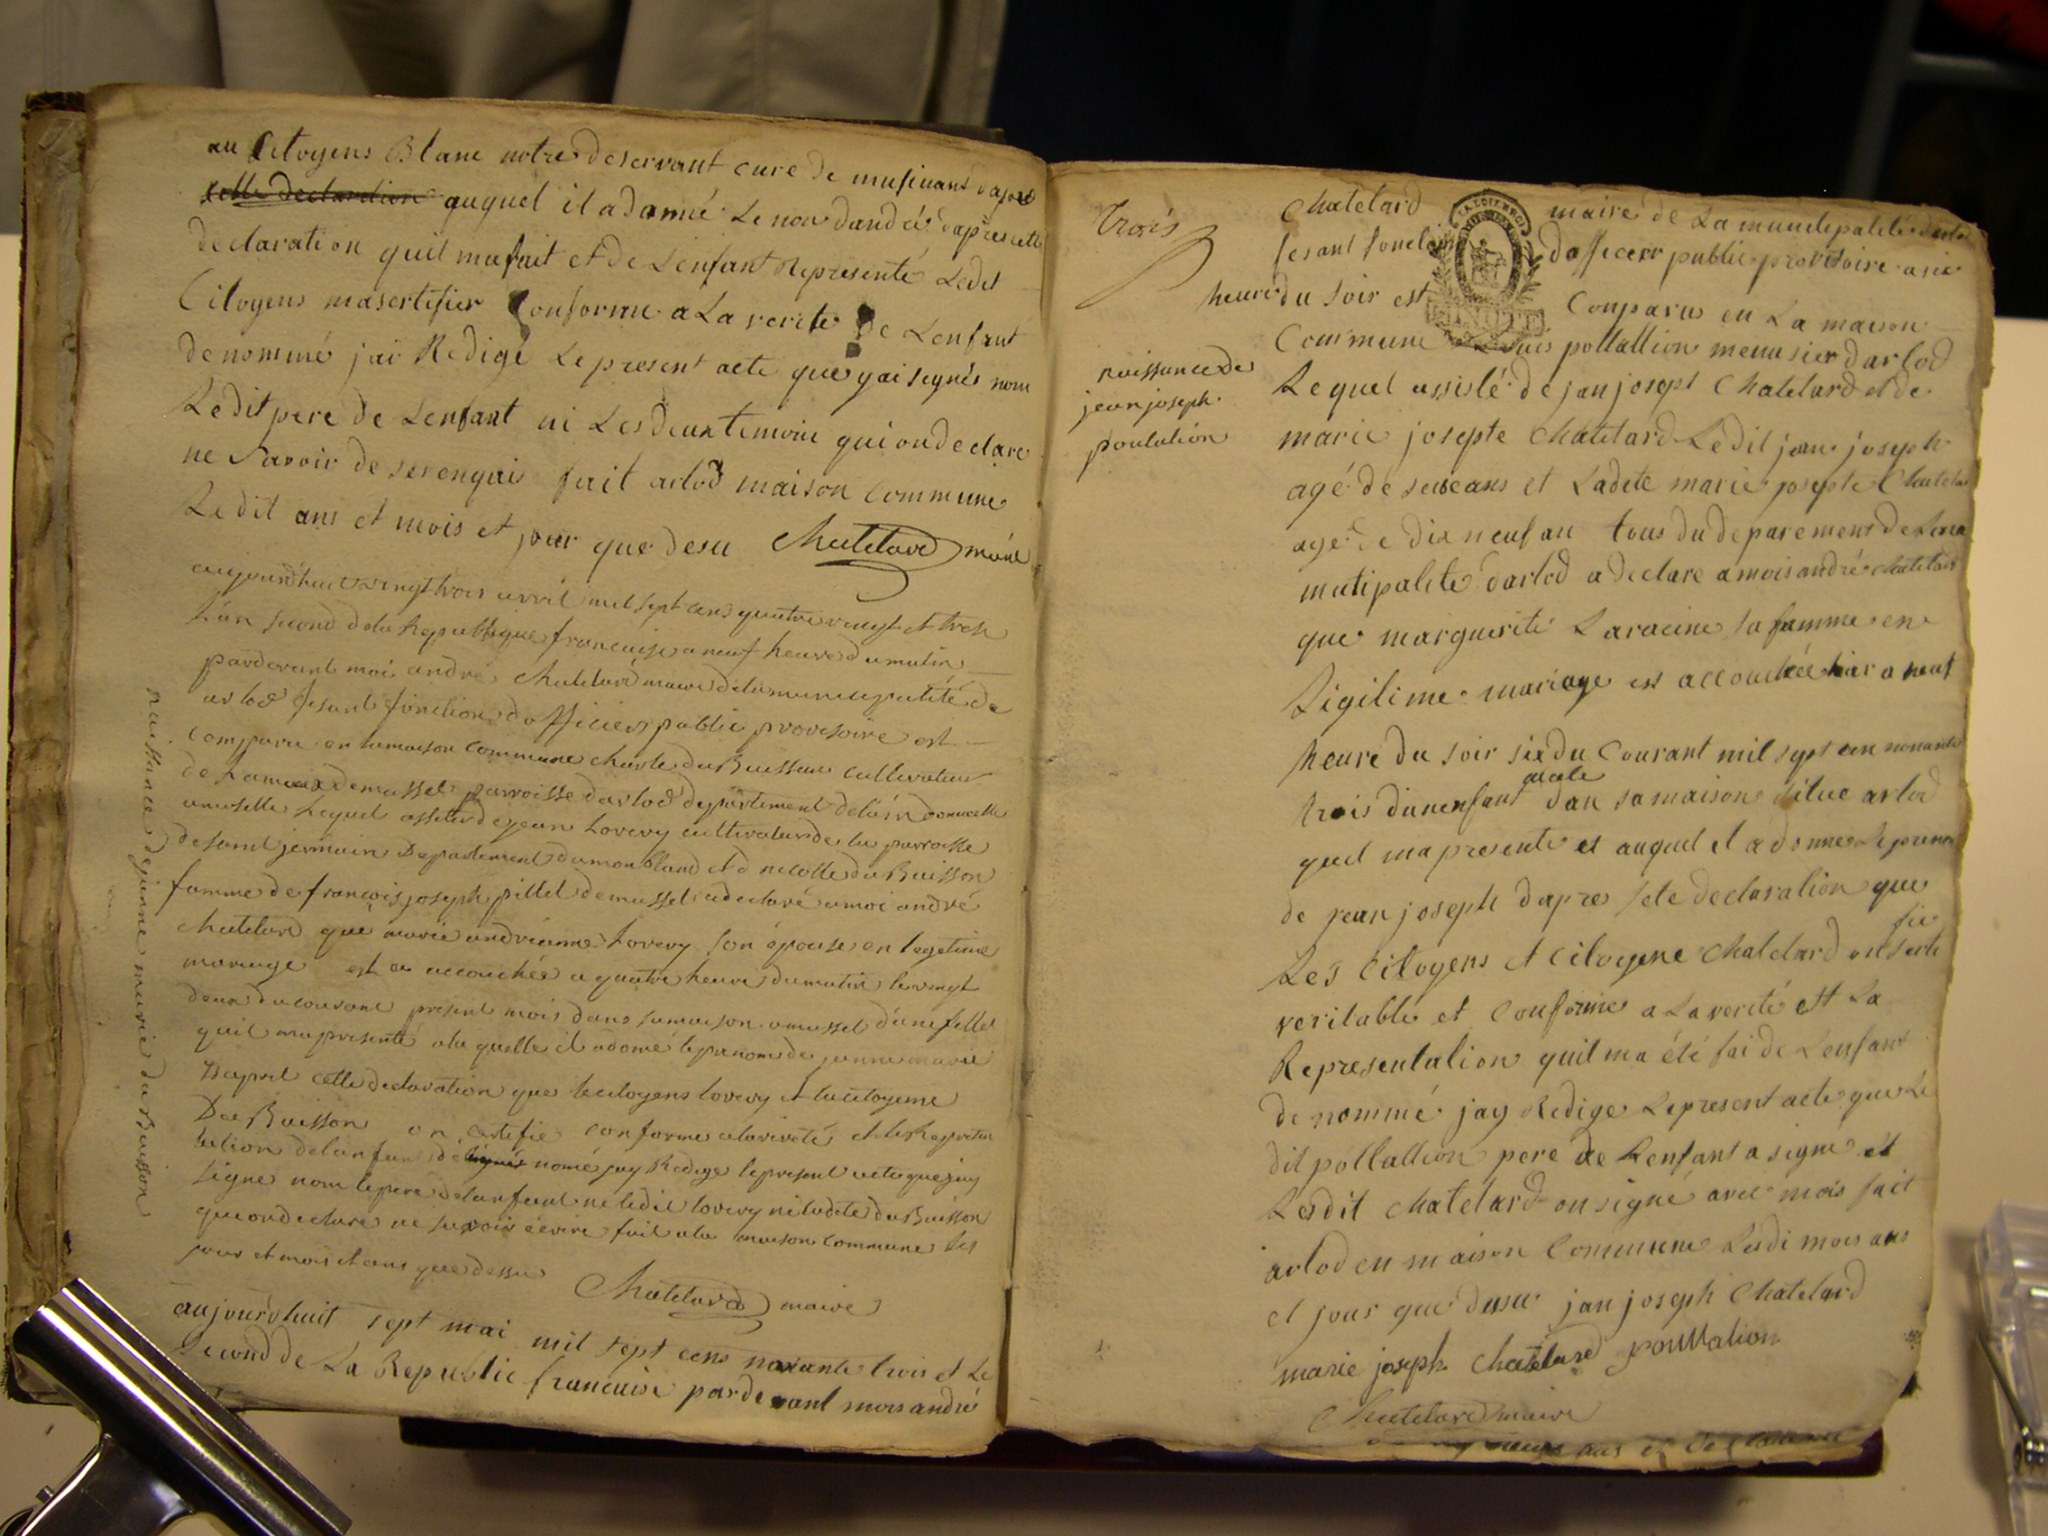 au Citoyens Blanc notre deservant cure de musinans dapre
cette declaration auquel il adonné Le nom dandré dapres cette
declaration quil mafait et de Lenfant Representé Ledit
Citoyens masertifier Conforme a La verite De Lenfant
denommé jai Redigé Le present acte que jai segnés nom
Ledit pere de Lenfant ni Les deux temoin qui on declare
ne Savoir de serenquis fait arlod maison Commune
Ledit ans et mois et jour que desu Chatelard maire
aujourdhuit vingt trois avril mil sept cens quatre vingt et trese
Lan second de la Republique francaise a neuf heure du matin
pardevant moi andré Chatelard maire de la municipalité de
arlod fesant fonction dofficier public provisoire est
comparu en la maison commune charle duBuisson cultivateur
de hameux demussel parroisse darlod departement de lain domicille
amuselle Lequel assister de jean Lovery cultivateur de la parroisse
de saint jermain Departement dumonbland et de nicolle du Buisson
famme de francois joseph pittet demussel adeclaré amoi andré
chatelard que marie andrianne Lovery son épouse en legetime
mariage est a accouchée a quatre heure dumatin levingt
deux ducourant present mois dans samaison amussel dune fille
quil mapresenté ala quelle il adonné leprenom de jeanne marie
Daprest cette declaration que le citoyens lovery et la citoyenne
Du Buisson on certifié conforme alaverité et la Represen
tation delanfan de signés nomé jay Redige lepresent acte que jay
signe nom lepere delanfant ne ledit lovery ni ladite duBuisson
que on declare ne savoir écrire fait ala maison commune les
jour et mois et ans que dessu
Chatelard maire
naissance de jeanne marie du Buisson
aujourdhuit sept mai mil sept cens nonante trois et Le
second de La Republic francaise pardevant mois andré
trois
naissance de
jean joseph
poulation
Chatelard maire de La municipalité darlod
fesant fonction dofficer public provisoire a sie
heure du soir est Comparu en La maison
Commune pollallion menusier darlod
Lequel assisté de jan joseph Chatelard et de
marie josepte Chatelard Ledit jean joseph
agé de seise ans et Ladite marie josepte Chatelar
agé de dix neuf an tous du deparement de Lein
mutipalite darlod a declare a mois andré chatelard
que marguerite Laracine sa famme en
Ligilime mariage est accouchée hiar a neuf
heure du soir six du Courant mil sept cen nonante
trois dunenfant male dan sa maison situe arlod
quil ma presente et auquel il a donne Le prenom
de jean joseph dapres sete declaration que
Les Citoyens et Citoyene Chatelard on serti fie
veritable et Conforme a La verité et La
Representation quil ma été fai de Lenfant
de nommé jay Redige Lepresent acte que Le
dit pollallion pere de Lenfant a signe et
Lesdit chatelard on signé avec mois fait
arlod en maison Commune Lesdi mois ans
et jour que dusu jan joseph Chatelard
marie joseph Chatelard poullalion
Chatelard maire